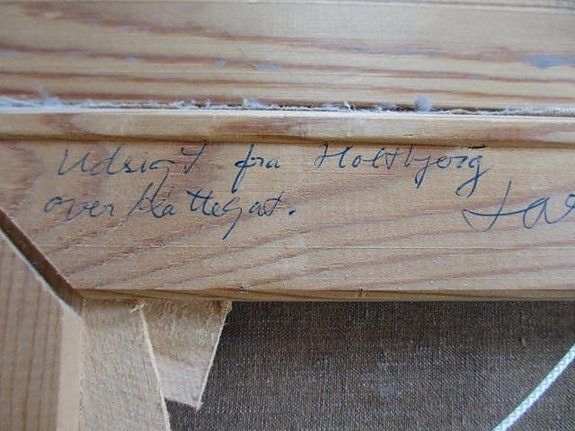 Udsigt fra Holtbjerg
over Kattegat.